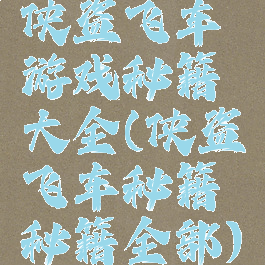 侠盗飞车
游戏秘籍
大全(侠盗
飞车秘籍
秘籍全部)